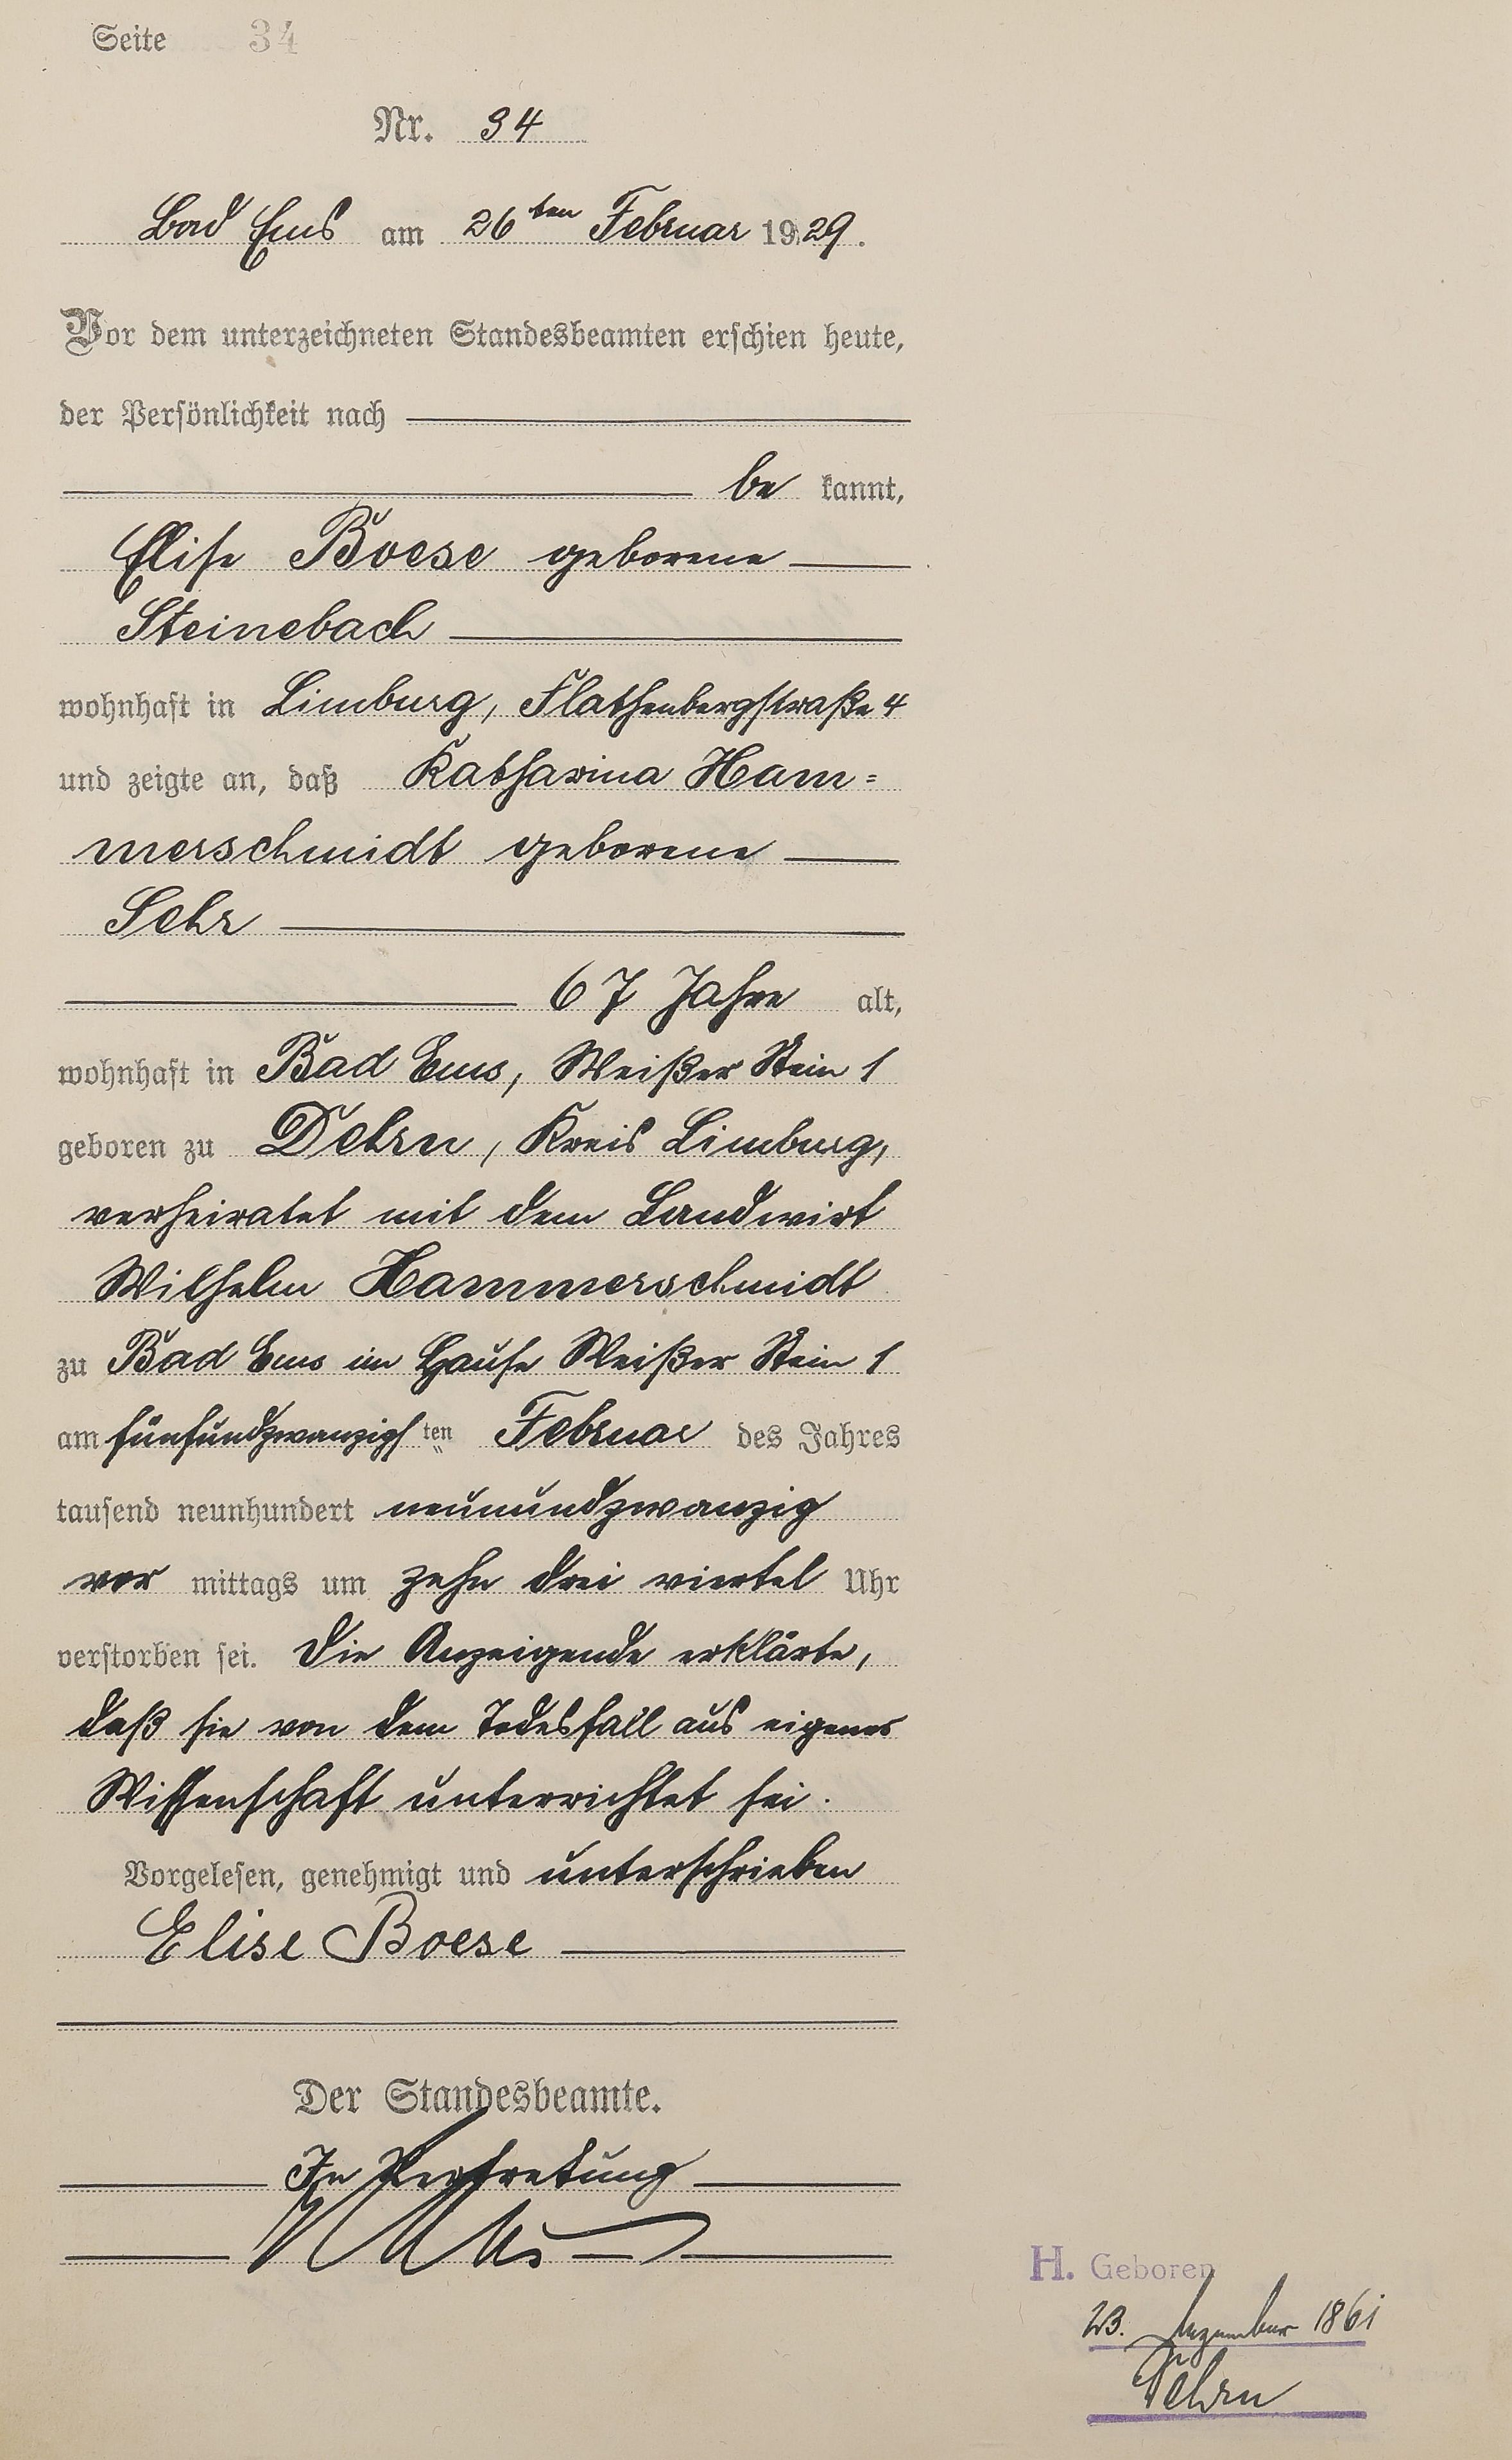 Seite 34
Nr. 34
Bad Ems am 26ten Februar 1929.
Vor dem unterzeichneten Standesbeamten erschien heute,
der Persönlichkeit nach
be kannt,
Elise Boese geborene
Steinebach
wohnhaft in Limburg, Flathenbergstraße 4
und zeigte an, daß Katharina Ham=
merschmidt geborene
Sehr
67 Jahre alt,
wohnhaft in Bad Ems, Weißer Stein 1
geboren zu Dehrn, Kreis Limburg,
verheiratet mit dem Landwirt
Wilhelm Hammerschmidt
zu Bad Ems im Hause Weißer Stein 1
am fünfundzwanzigsten Februar des Jahres
tausend neunhundert neunundzwanzig
vor mittags um zehn drei viertel Uhr
verstorben sei. Die Anzeigende erklärte,
daß sie von dem Todesfall aus eigener
Wissenschaft unterrichtet sei.
Vorgelesen, genehmigt und unterschrieben
Elise Boese
Der Standesbeamte.
In Vertretung
H. Geboren
23. Dezember 1861
Dehrn